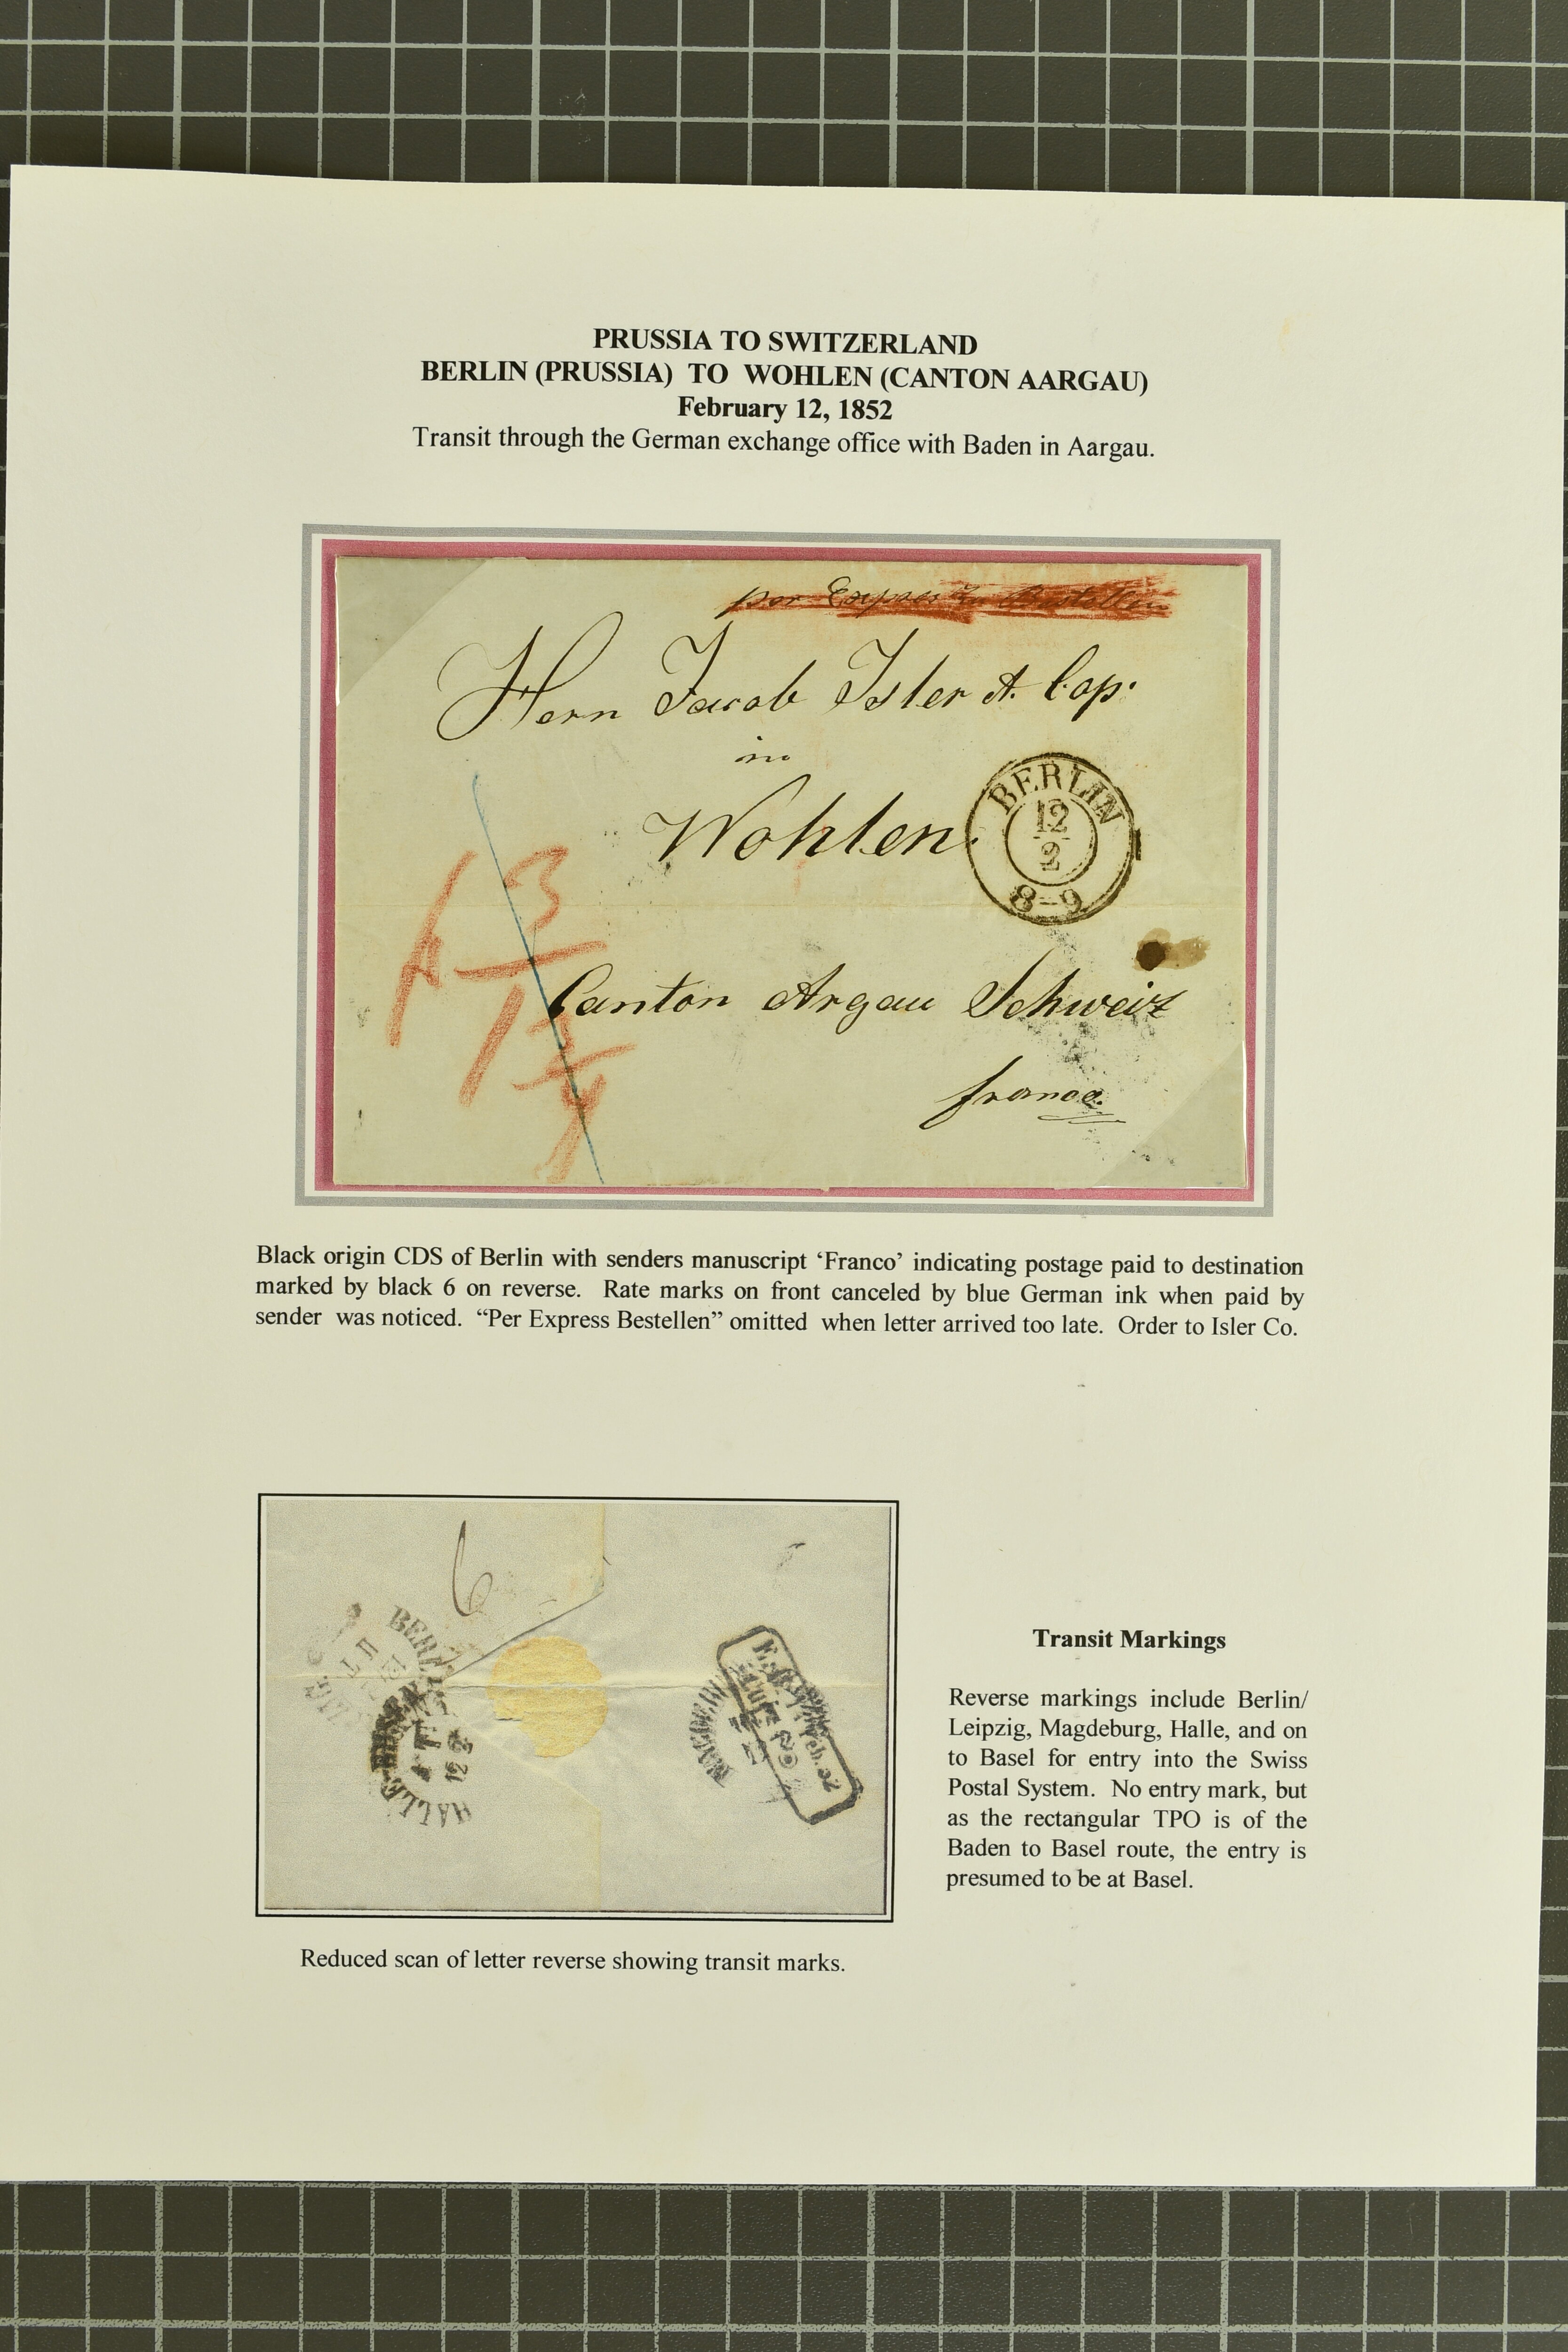 PRUSSIA TO SWITZERLAND
BERLIN (PRUSSIA) TO WOHLEN (CANTON AARGAU)
February 12, 1852
Transit through the German exchange office with Baden in Aargau.
per Express zu Bestellen
Herrn Jacob Isler & Cop.
in
Wohlen.
BERLIN
12
2
8-9
3
Canton Argau Schweiz
franco.
Black origin CDS of Berlin with senders manuscript ‘Franco’ indicating postage paid to destination
marked by black 6 on reverse. Rate marks on front canceled by blue German ink when paid by
sender was noticed. “Per Express Bestellen” omitted when letter arrived too late. Order to Isler Co.
6
BERL
HALLE
12 2
MAGDEB
Transit Markings
Reverse markings include Berlin/
Leipzig, Magdeburg, Halle, and on
to Basel for entry into the Swiss
Postal System. No entry mark, but
as the rectangular TPO is of the
Baden to Basel route, the entry is
presumed to be at Basel.
Reduced scan of letter reverse showing transit marks.